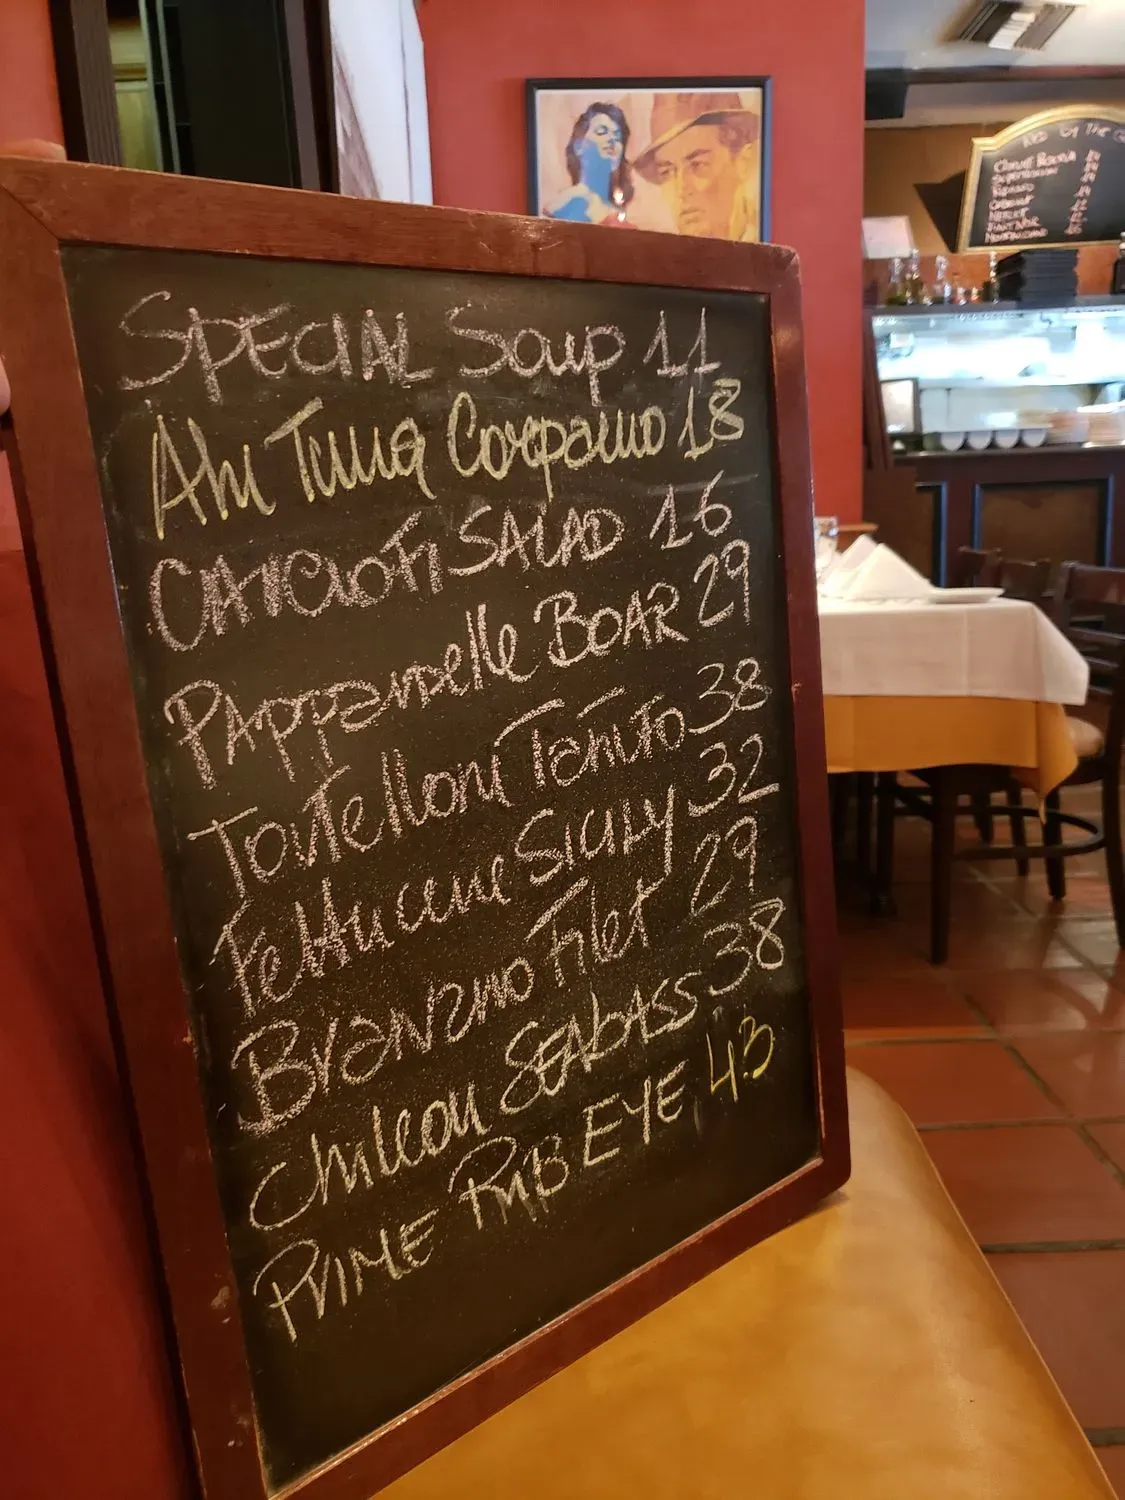 SPECIAL Soup 11
Ahi Tuna Carpaccio 18
CARCIOFI SALAD 16
PAppardelle BOAR 29
Tortelloni Tartufo 38
Fettuccine SICILY 32
Branzino Filet 29
Chilean SEAbASS 38
PRIME RIB EYE 43
BY THE